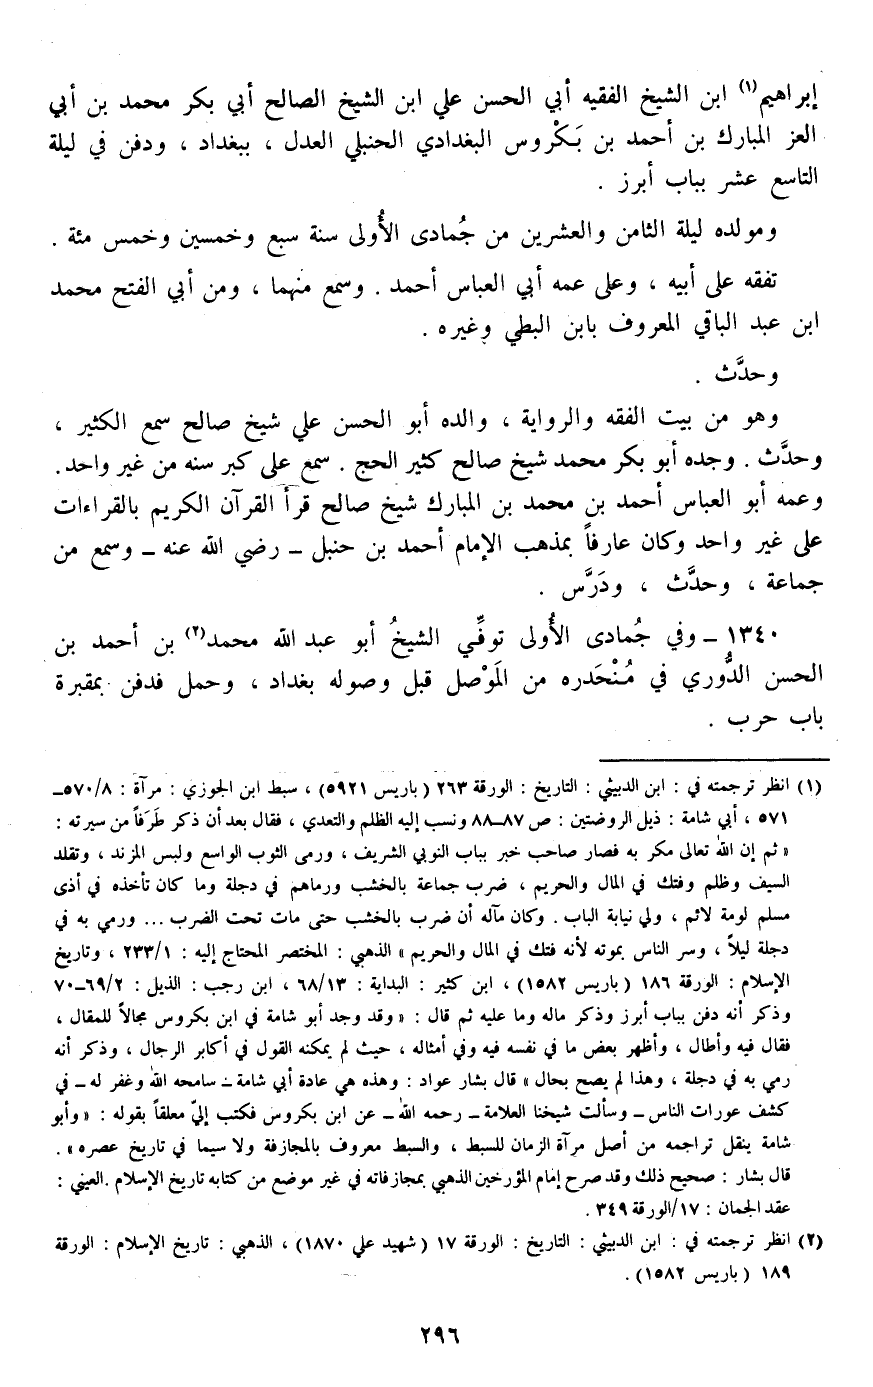 إبراهيم(١) ابن الشيخ الفقيه أبي الحسن علي ابن الشيخ الصالح أبي بكر محمد بن أبي
العز المبارك بن أحمد بن بَكْروس البغدادي الحنبلي العدل ، ببغداد ، ودفن في ليلة
التاسع عشر بباب أبرز .
ومولده ليلة الثامن والعشرين من جُمادى الأُولى سنة سبع وخمسين وخمس مئة .
تفقه على أبيه ، وعلى عمه أبي العباس أحمد . وسمع منهما ، ومن أبي الفتح محمد
ابن عبد الباقي المعروف بابن البطي وغيره .
وحدَّث .
وهو من بيت الفقه والرواية ، والده أبو الحسن علي شيخ صالح سمع الكثير ،
وحدَّث . وجده أبو بكر محمد شيخ صالح كثير الحج . سمع على كبر سنه من غير واحد.
وعمه أبو العباس أحمد بن محمد بن المبارك شيخ صالح قرأ القرآن الكريم بالقراءات
على غير واحد وكان عارفاً بمذهب الإمام أحمد بن حنبل ــ رضي الله عنه ــ وسمع من
جماعة ، وحدَّث ، ودَرَّس .
١٣٤٠ ــ وفي جُمادى الأُولى توفِّي الشيخُ أبو عبد الله محمد(٢) بن أحمد بن
الحسن الدُّوري في مُنْحَدره من المَوْصل قبل وصوله بغداد ، وحمل فدفن بمقبرة
باب حرب .
(١) انظر ترجمته في : ابن الدبيثي : التاريخ : الورقة ٢٦٣ ( باريس ٥٩٢١) ، سبط ابن الجوزي : مرآة : ٨/ ٥٧٠ــ
٥٧١ ، أبي شامة : ذيل الروضتين : ص ٨٧ــ٨٨ ونسب إليه الظلم والتعدي ، فقال بعد أن ذكر طَرَفاً من سيرته :
« ثم إن الله تعالى مكر به فصار صاحب خبر بباب النوبي الشريف ، ورمى الثوب الواسع ولبس المزند ، وتقلد
السيف وظلم وفتك في المال والحريم ، ضرب جماعة بالخشب ورماهم في دجلة وما كان تأخذه في أذى
مسلم لومة لائم ، ولي نيابة الباب . وكان مآله أن ضرب بالخشب حتى مات تحت الضرب ... ورمي به في
دجلة ليلاً ، وسر الناس بموته لأنه فتك في المال والحريم » الذهبي : المختصر المحتاج إليه : ٢٣٣/١ ، وتاريخ
الإسلام : الورقة ١٨٦ ( باريس ١٥٨٢) ، ابن كثير : البداية : ٦٨/١٣ ، ابن رجب : الذيل : ٦٩/٢ــ٧٠
وذكر أنه دفن بباب أبرز وذكر ماله وما عليه ثم قال : « وقد وجد أبو شامة في ابن بكروس مجالاً للمقال ،
فقال فيه وأطال ، وأظهر بعض ما في نفسه فيه وفي أمثاله ، حيث لم يمكنه القول في أكابر الرجال ، وذكر أنه
رمي به في دجلة ، وهذا لم يصح بحال » قال بشار عواد : وهذه هي عادة أبي شامة ــ سامحه الله وغفر له ــ في
كشف عورات الناس ــ وسألت شيخنا العلامة ــ رحمه الله ــ عن ابن بكروس فكتب إليّ معلقاً بقوله : « وأبو
شامة ينقل تراجمه من أصل مرآة الزمان للسبط ، والسبط معروف بالمجازفة ولا سيما في تاريخ عصره » .
قال بشار : صحيح ذلك وقد صرح إمام المؤرخين الذهبي بمجازفاته في غير موضع من كتابه تاريخ الإسلام . العيني :
عقد الجمان : ١٧/الورقة ٣٤٩ .
(٢) انظر ترجمته في : ابن الدبيثي : التاريخ : الورقة ١٧ ( شهيد علي ١٨٧٠) ، الذهبي : تاريخ الإسلام : الورقة
١٨٩ ( باريس ١٥٨٢) .
٢٩٦